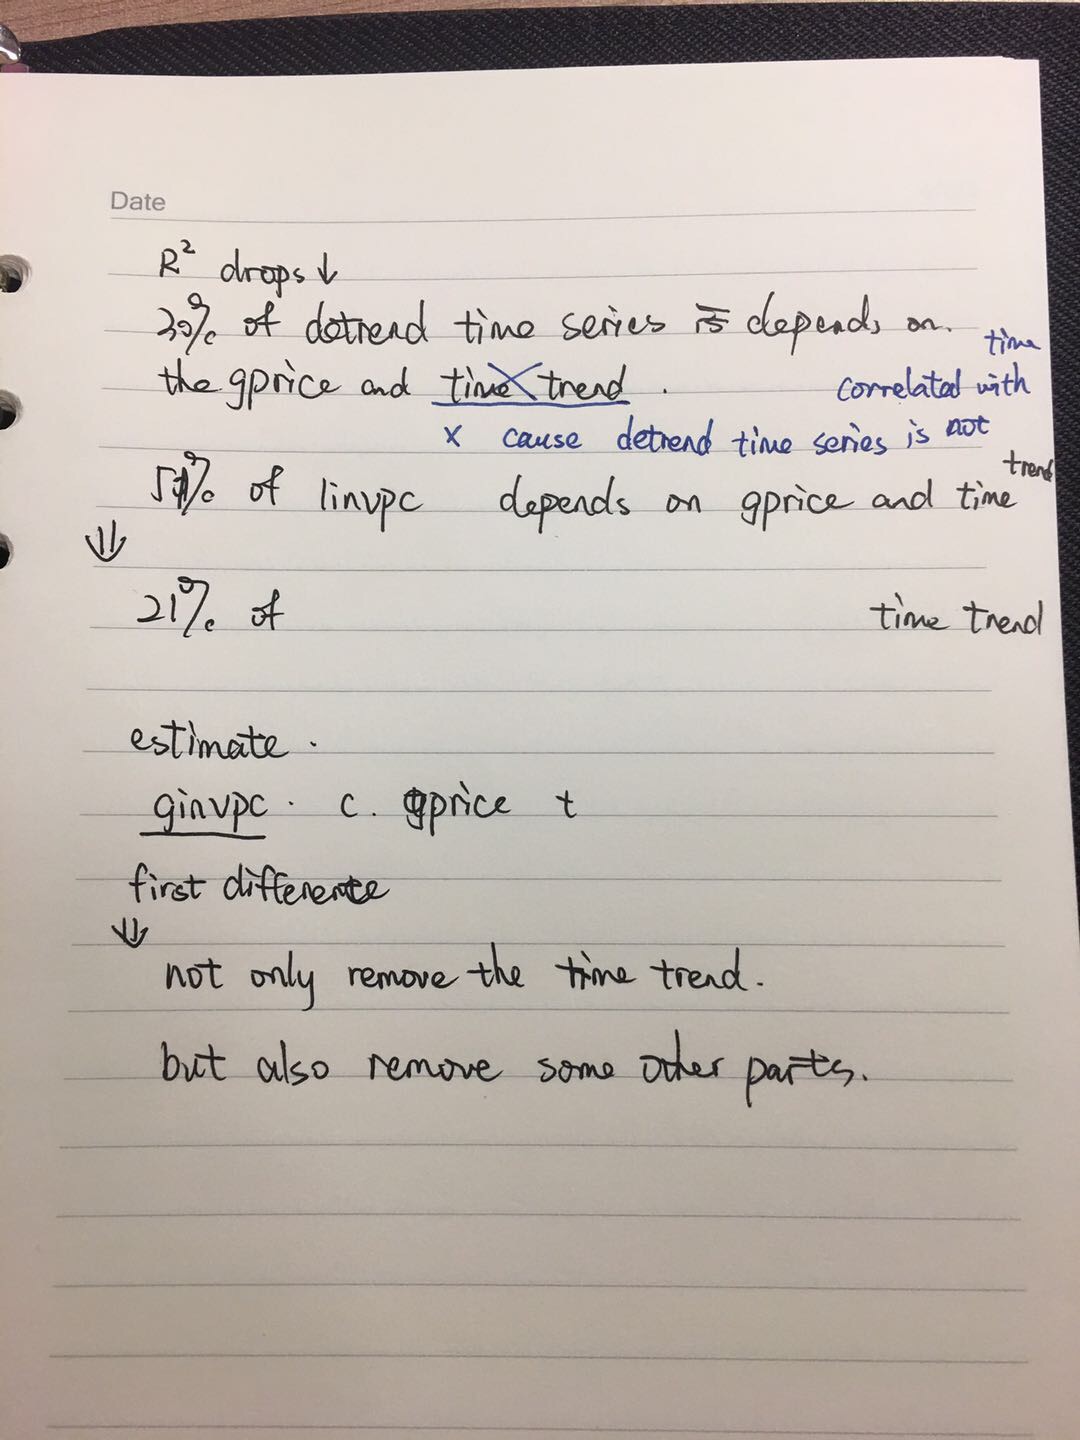 Date
R² drops ↓
30% of detrend time series is depends on.
the gprice and time trend .
x cause detrend time series is not
correlated with
time
trend
51% of linvpc depends on gprice and time
⇓
21% of time trend
estimate .
ginvpc . c. gprice t
first difference
⇓
not only remove the time trend.
but also remove some other parts.